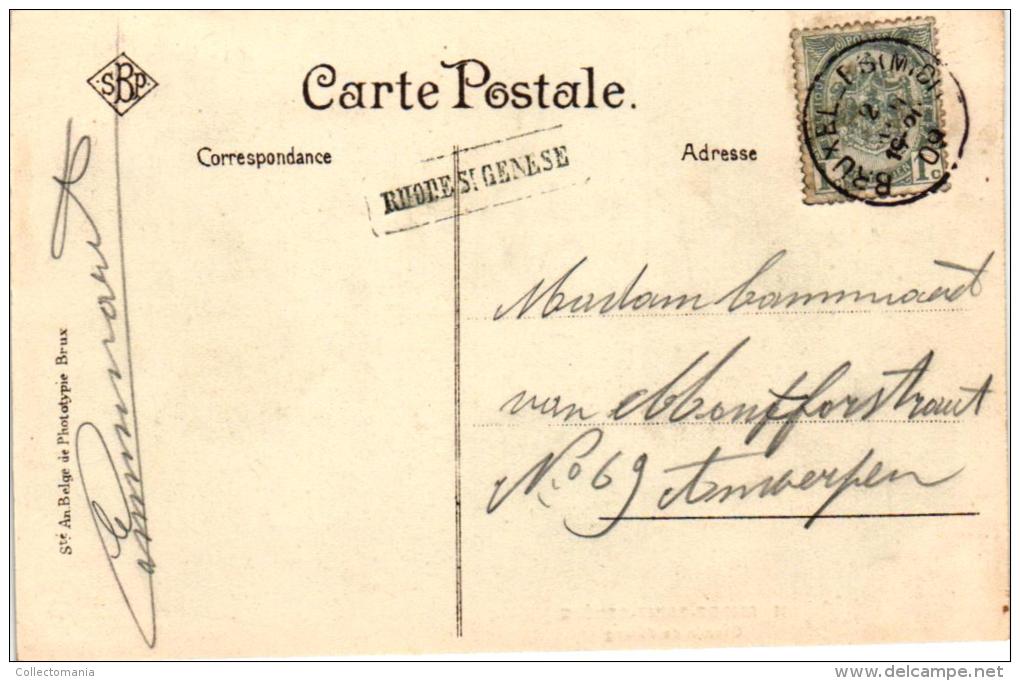 SBP
Carte Postale.
Correspondance
Adresse
RHODE ST GENESE
BRUXELLES (MIDI)
09
1 C
Madam Cammaert
van Montfortstraat
No 69 Antwerpen
Cammaert
Sté An. Belge de Phototypie Brux
Collectomania
www.delcampe.net